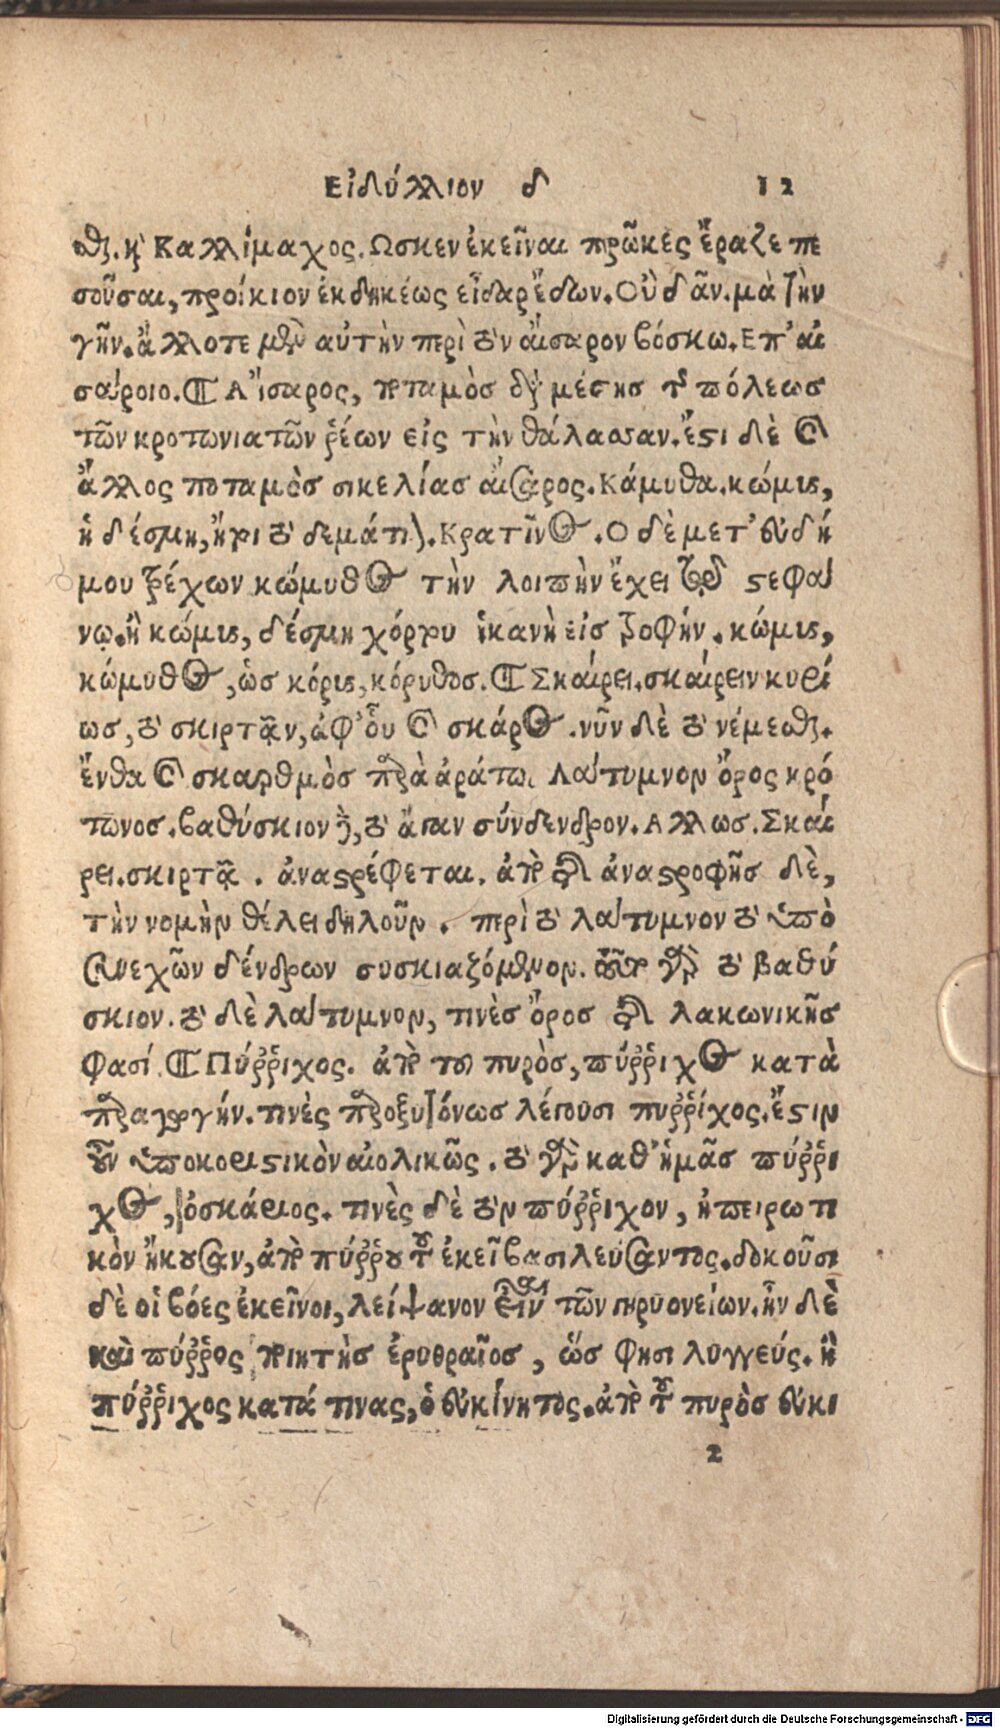 Εἰδύλλιον δ 12
σθαι. καὶ Καλλίμαχος. Ὡς κεν ἐκεῖναι πρῶκες ἔραζε πε
σοῦσαι, προίκιον ἐκ δηκέως εἶδαρ ἔδων. Οὐ δᾶν. μὰ τὴν
γῆν. ἄλλοτε μὲν αὐτὴν περὶ τὸν αἴσαρον βόσκω. Ἐπ' αἰ
σάροιο. ¶ Αἴσαρος, ποταμὸς διὰ μέσης τῆς πόλεως
τῶν κροτωνιατῶν ῥέων εἰς τὴν θάλασσαν. ἔστι δὲ καὶ
ἄλλος ποταμὸς σικελίας αἴσαρος. Κώμυθα. κώμυς,
ἡ δέσμη, ἤγουν τὸ δεμάτι). Κρατῖνος. Ὁ δὲ μετ' εὐδή
μου τρέχων κώμυθος τὴν λοιπὴν ἔχει τῷ στεφά
νῳ. ἢ κώμυς, δέσμη χόρτου ἱκανὴ εἰς τροφήν. κώμυς,
κώμυθος, ὡς κόρυς, κόρυθος. ¶ Σκαίρει. σκαίρειν κυρί
ως, τὸ σκιρτᾶν, ἀφ' οὗ καὶ σκάρος. νῦν δὲ τὸ νέμεσθαι.
ἔνθα καὶ σκαρθμὸς παρὰ ἀράτῳ. Λάτυμνον ὄρος κρό
τωνος. βαθύσκιον δὲ, τὸ ἅπαν σύνδενδρον. Ἄλλως. Σκαί
ρει. σκιρτᾷ. ἀναστρέφεται. ἀπὸ τῆς ἀναστροφῆς δὲ,
τὴν νομὴν θέλει δηλοῦν. περὶ τὸ λάτυμνον τὸ ὑπὸ
συνεχῶν δένδρων συσκιαζόμενον. τοῦτο γὰρ τὸ βαθύ
σκιον. τὸ δὲ λάτυμνον, τινὲς ὄρος τῆς λακωνικῆς
φασί. ¶ Πύῤῥιχος. ἀπὸ τοῦ πυρὸς, πύῤῥιχος κατὰ
παραγωγήν. τινὲς παροξυτόνως λέγουσι πυῤῥίχος. ἔστιν
οὖν ὑποκοριστικὸν αἰολικῶς. τὸ γὰρ καθ' ἡμᾶς πύῤῥι
χος, ὁ σκάριος. τινὲς δὲ τὸν πύῤῥιχον, ἠπειρωτι
κὸν ἤκουσαν, ἀπὸ πύῤῥου τοῦ ἐκεῖ βασιλεύσαντος. δοκοῦσι
δὲ οἱ βόες ἐκεῖνοι, λείψανον εἶναι τῶν γηρυονείων. ἦν δὲ
καὶ πύῤῥος ποιητὴς ἐρυθραῖος, ὥς φησι λυγγεύς. ἢ
πύῤῥιχος κατά τινας, ὁ εὐκίνητος. ἀπὸ τοῦ πυρὸς εὐκι
2
Digitalisierung gefördert durch die Deutsche Forschungsgemeinschaft - DFG